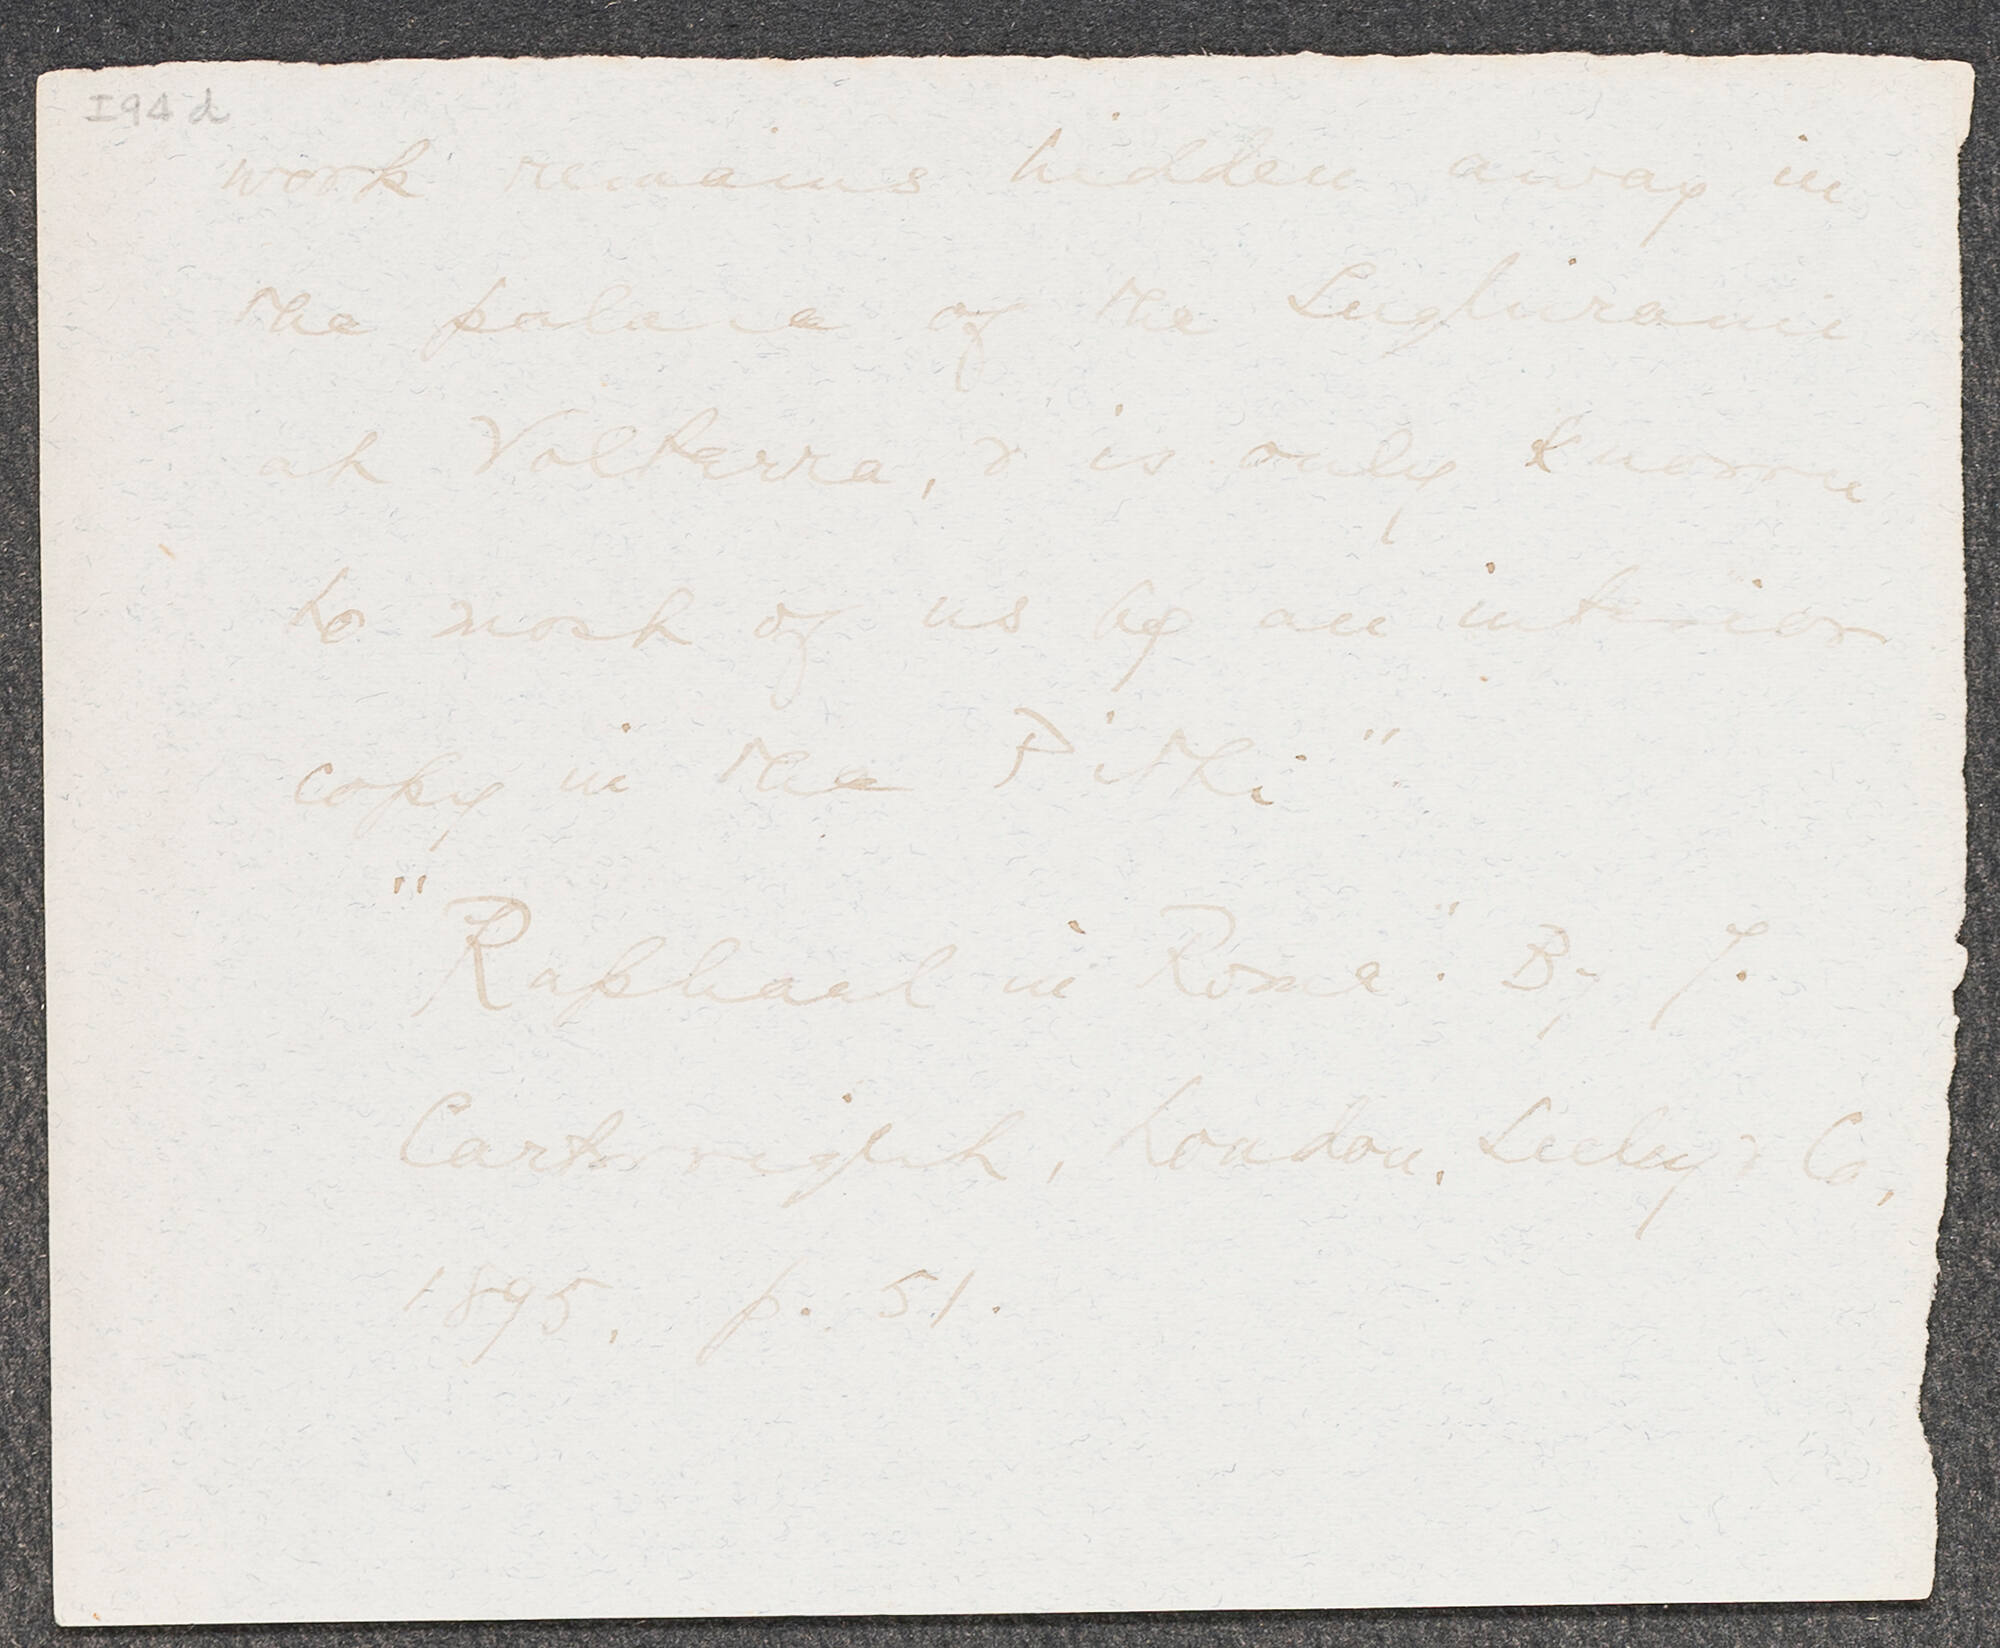 I94d
work remains hidden away in
the palace of the Inghirami
at Volterra, & is only known
to most of us by an inferior
copy in the Pitti"
"Raphael in Rome". By J.
Cartwright, London, Seeley & Co,
1895, p. 51.